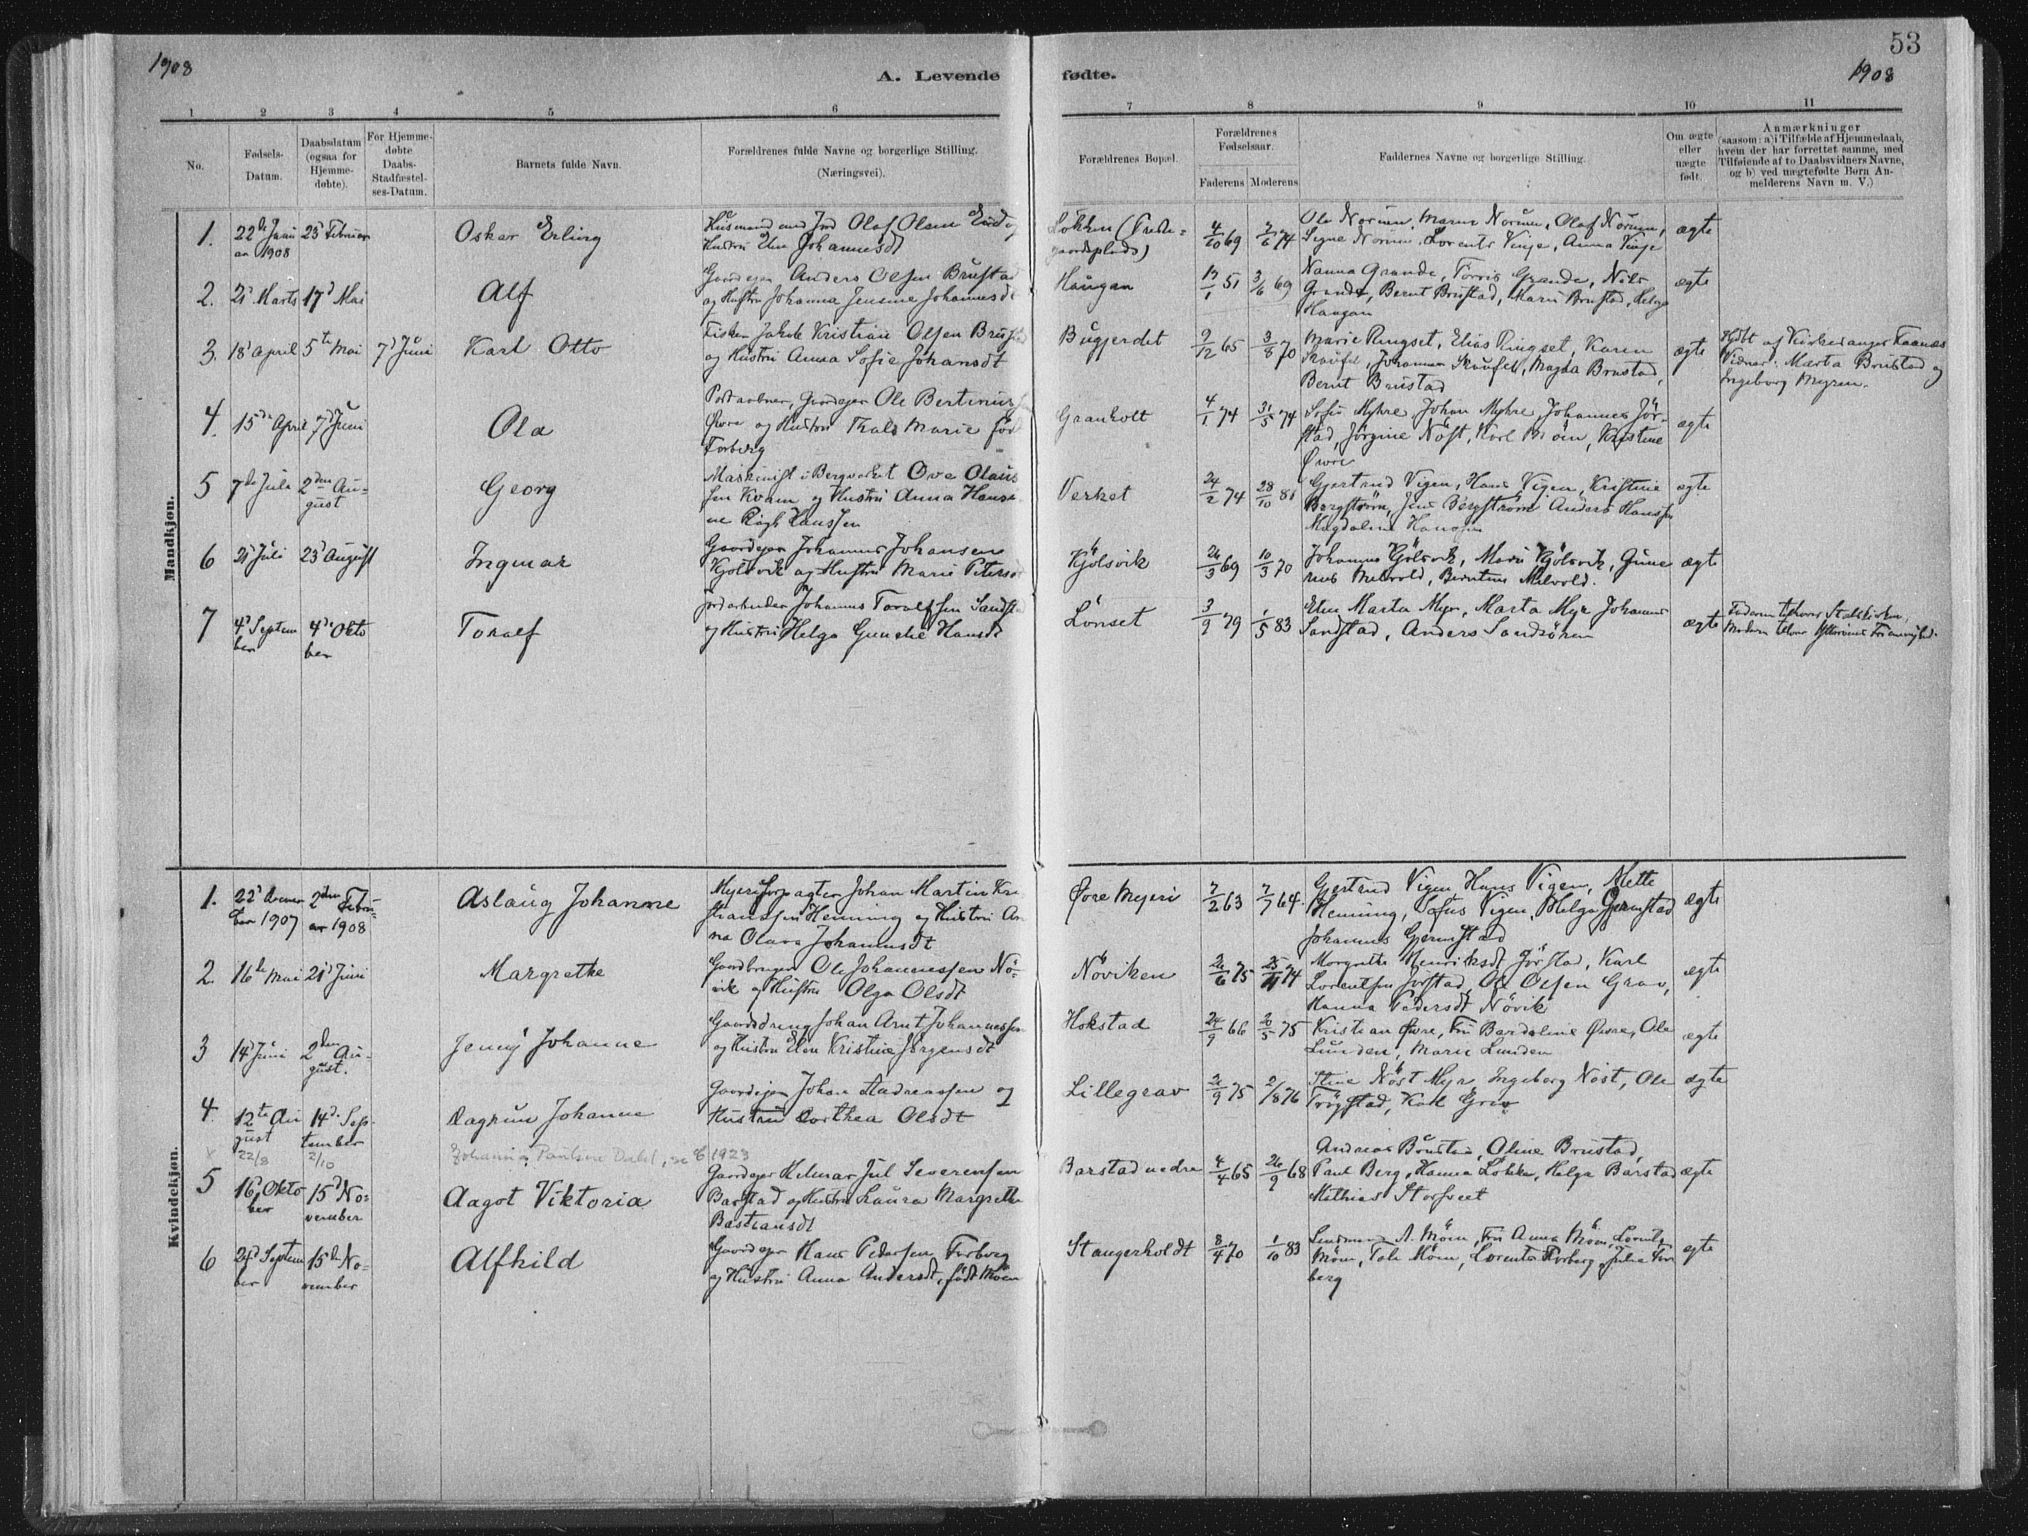 1908
A. Levende fødte.
53
1908
1 2 3 4 5 6 7 8 9 10 11
No.
Fødsels-Datum.
Daabsdatum (ogsaa for Hjemme-døbte).
For Hjemme-døbte Daabs-Stadfæstel-ses-Datum.
Barnets fulde Navn.
Forældrenes fulde Navne og borgerlige Stilling.
(Næringsvei).
Forældrenes Bopæl.
Forældrenes Fødselsaar.
Faderens Moderens
Faddernes Navne og borgerlige Stilling.
Om ægte eller uægte født.
Anmærkninger
(saasom: a) i Tilfælde af Hjemmedaab,
hvem der har forrettet samme, med
Tilføiende af to Daabsvidners Navne,
og b) ved uægtefødte Børn An-
melderens Navn m. V.)
Mandkjøn.
1. 22de Janu 23d Februar Oskar Erling Husmand med Jord Olaf Olsen
ar 1908 Hustru Elen Johannesdt
Løkken 4/10 69 7/6 74 Ole Norum, Marie Norum, Olaf Norum, ægte
gaardsplads) Signe Norum, Lorents Vinje, Anna Vinje
2. 21d Marts 17d Mai Alf Gaardejer Anders Olsen Brustad
og Hustru Johanna Jensine Johannesdt
Haugan 13/1 51 3/6 69 Nanna Grande, Torris Grande, Nils ægte
Grande, Bernt Brustad, Marie Brustad, Helga
Haugan
3. 18d April 5te Mai 7d Juni Karl Otto Fisker Jakob Kristian Olsen Brustad
og Hustru Anna Sofie Johansdt
Bugjerdet 9/12 65 3/8 70 Marie Ringset, Elias Ringset, Karen ægte
Skaufel, Johannes Skaufel, Magda Brustad,
Bernt Brustad
Hjdbt af Kirkesanger Faanes
Vidner: Marta Brustad og
Ingeborg Myren.
4. 15de April 7d Juni Ola Postaabner, Gaardejer Ole Bertinus
Øvre og Hustru Marie født
Forberg
Granholt 4/1 74 31/5 74 Sofie Myhre, Johan Myhre, Johannes Jør-
stad, Jørgine Nøst, Karl Moen, Kristine ægte
Øvre
5 7de Juli 2den Au- Georg Maskinist i Bergverket Ove Olaus
gust sen Kvam og Hustru Anna Hansi
ne Hanssen
Verket 24/2 74 28/10 81 Gjertrud Vigen, Hans Vigen, Kristine ægte
Bergstrøm, Jens Bergstrøm Anders Hanssen
Magdalena
6 21d Juli 23d August Ingmar Gaardejer Johannes Johansen
Kjølsvik og Hustru Marie Petersdt
Kjølsvik 26/3 69 10/3 70 Johannes Kjølsvik, Marie Kjølsvik, Gune ægte
rius Melvold, Berntine Melvold.
7 4d Septem 4de Okto Toralf Jordarbeider Johannes Toralfsen Sandstad
ber ber og Hustru Helga Gunelie Hansdt
Lønset 3/9 79 1/5 83 Elen Marta Myr, Marta Myr Johannes
Sandstad, Anders Sandsören ægte
Faderen tilhører Statskirken,
Moderen tilhører Ytterøens Frimenighed.
Kvindekjøn.
1. 22d Decem 2den Febru- Aslaug Johanne Mejeriforpagter Johan Martin Kri
ber 1907 ar 1908 stianssen Henning og Hustru An
na Olava Johannesdt
Øvre Mejeri 7/2 63 7/7 64. Gjertrud Vigen Hans Vigen, Mette ægte
Henning, Sofus Vigen, Helga Gjermstad
Johannes Gjermstad
2. 16de Mai 21d Juni Margrethe Gaardbruger Ole Johannessen Nø-
vik og Hustru Olga Olsdt
Nøviken 2/6 75 25/11 74 Margrethe Henriksdt Jørstad, Karl
Lorentsen Jørstad, Ole Olsen Grav, ægte
Hanna Pedersdt Nøvik
3 14d Juni 2den Au- Jenny Johanne Gaardsdreng Johan Arnt Johannessen
gust. og Hustru Elen Kristine Jørgensdt
Hokstad 24/9 66 20/5 75 Kristian Øvre, Fru Bardoline Øvre, Ole
Lunden, Marie Lunden ægte
4. 12te Au 14d Sep- Dagrun Johanne Gaardejer Johan Andreassen og
gust tember Hustru Dorthea Olsdt
Lillegrav 2/9 75 2/8 76 Stine Nøst Myr, Ingeborg Nøst, Ole ægte
Trøgstad, Karl Grav
22/8 2/10 Johanna Pauline 1923
5 16 Okto 15d No- Aagot Viktoria Gaardejer Helmar Jul Severensen
ber vember Barstad og Hustru Laura Margrethe
Bastiansdt
Barstad nedre 4/4 65 26/9 68 Andreas Brustad, Oline Brustad,
Paul Berg, Hanna Løkken, Helga Barstad ægte
Mathias Storhveet
6 24d Septem 15de No- Alfhild Gaardejer Hans Pedersen Forberg
ber vember og Hustru Anna Andersdt, født Moen
Stangerholdt 8/4 70 1/10 83 A. Møen, Fru Anna Møen, Lorents ægte
Møen, Møen, Lorents Forberg, Julie For
berg